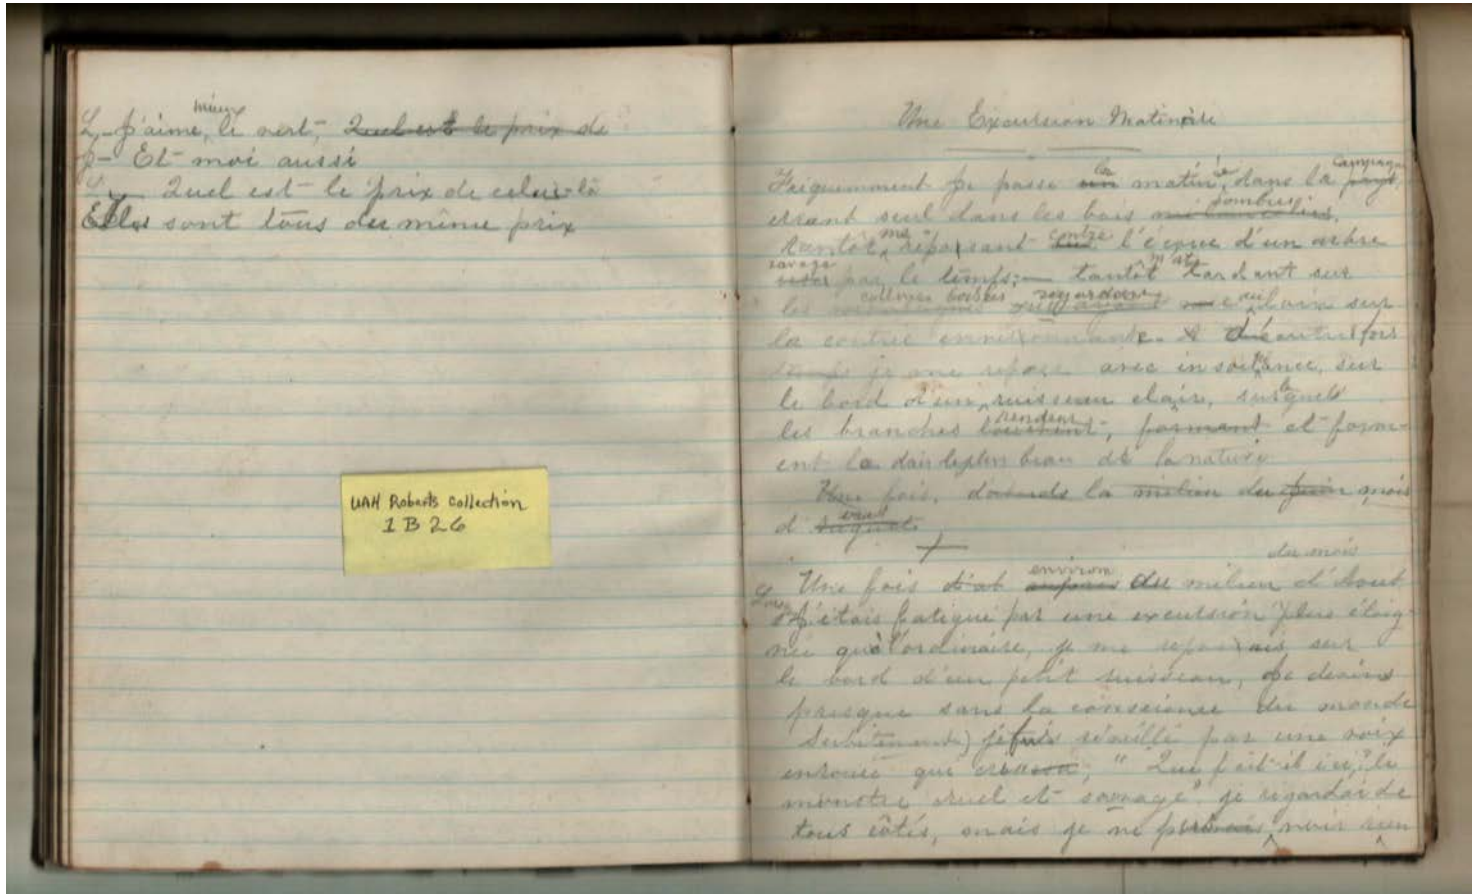 mieux
L- J'aime, le vert, Quel est le prix de
J- Et moi aussi
L- Quel est le prix de celui-là
Elles sont tous du même prix
UAH Roberts Collection
1 B 26
Une Excursion Matinère
Friquemment je passe un les matin, dans la pays campagne,
errant seul dans les bois sombres
tantôt, me reposant contre l'écorce d'un arbre
ravagé par le temps; — tantôt m'attardant sur
les collines boisées regardant au loin sur
la contrée environnante. d'autre fois
je me repose avec insouciance, sur
le bord d'un, ruisseau clair, sur lequel
les branches pendent, formant et form-
ent la dais le plus beau de la nature
Une fois, la milieu du juin mois
d'
du mois
Une fois environ du milieu d'Aout
J'étais fatigué par une excursion plus éloig-
née qu'à l'ordinaire, je me reposais sur
le bord d'un petit ruisseau,
presque sans la conscience du monde
Subitement je fus réveillé par une voix
enrouée qui "Que fait-il ici, le
monstre cruel et sauvage" je regardai de
tous côtés, mais je ne voir rien